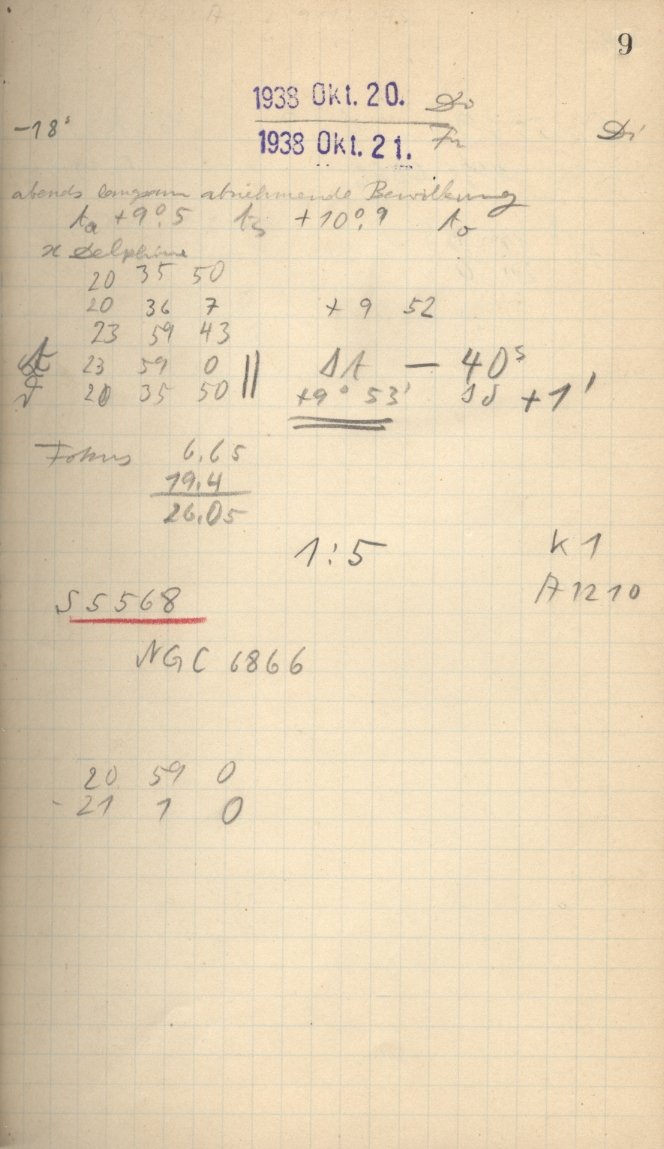 9
1938 Okt. 20. Do
-18ˢ Di
1938 Okt. 21. Fr
abends langsam abnehmende Bewölkung
ta +9°.5 ts +10°.9 to
κ Delphini
20 35 50
20 36 7 + 9 52
23 59 43
23 59 0 || Δt — 40ˢ
20 35 50 +9° 53' Δδ +1'
Fokus 6.65
19.4
26.05
1:5 K 1
A 1210
S 5568
NGC 6866
20 59 0
- 21 1 0